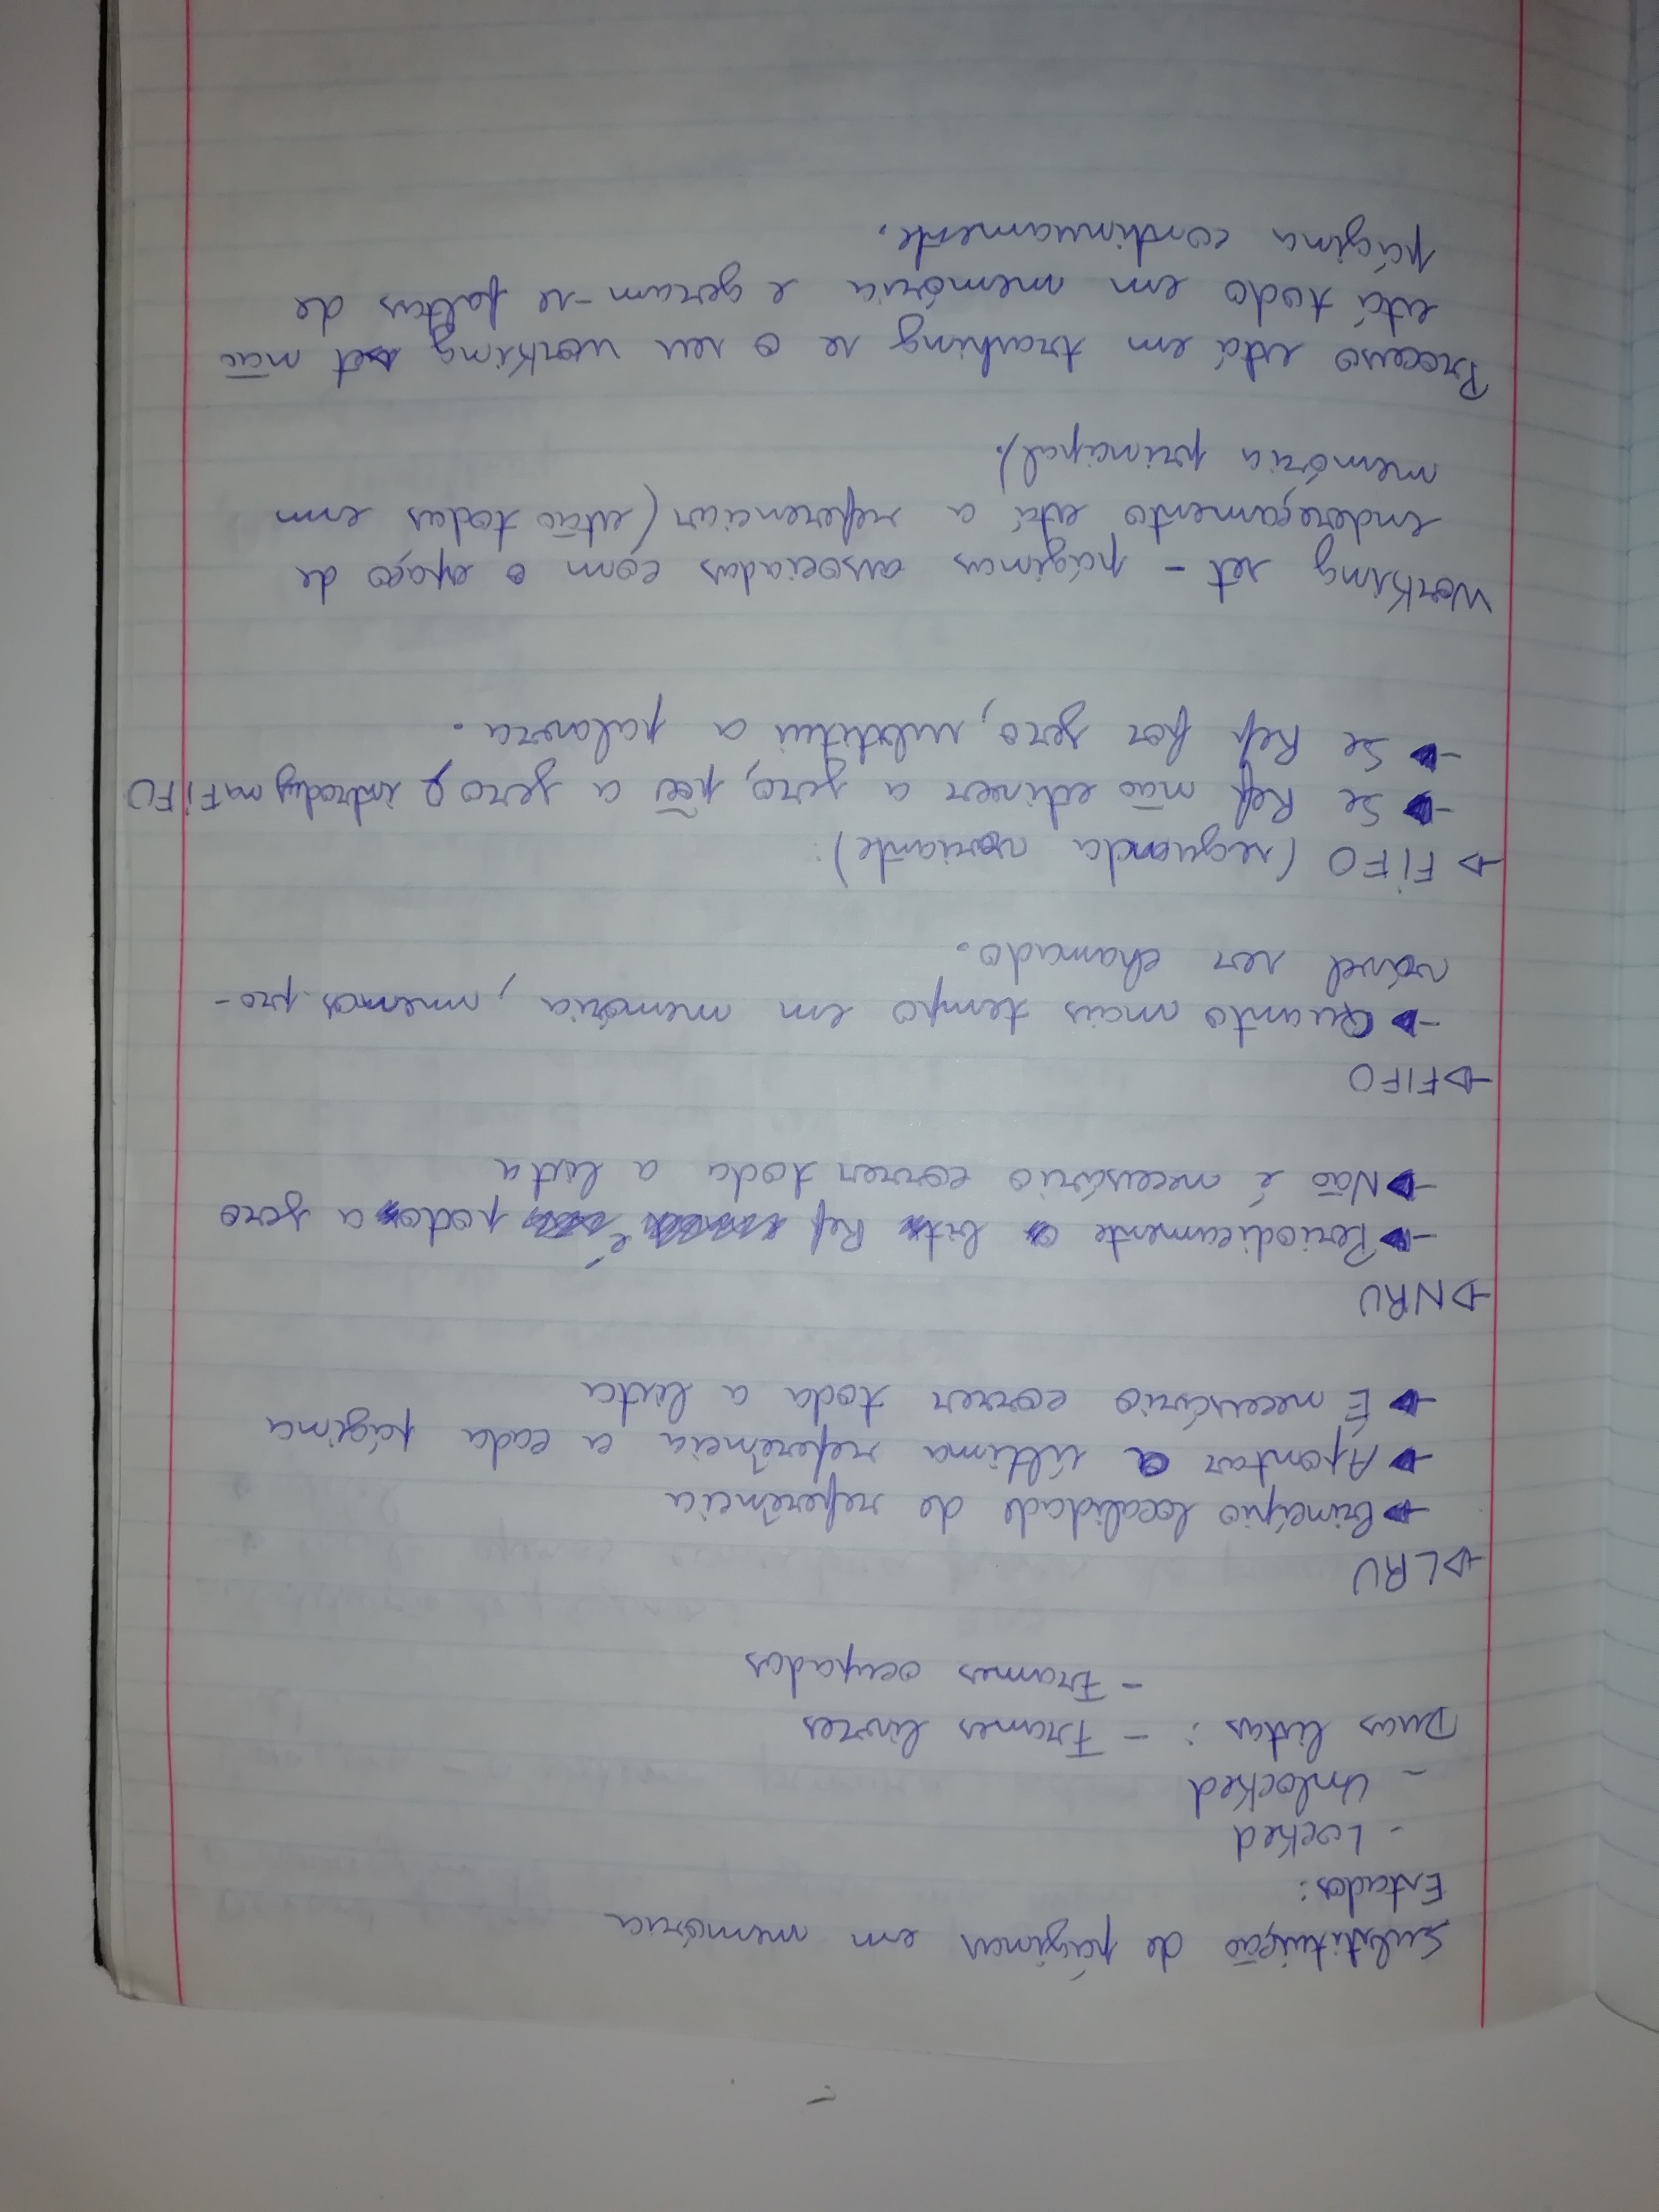 Substituição de páginas em memória
Estados:
- Locked
- Unlocked
Duas listas : - Frames livres
- Frames ocupados
→ LRU
→ Princípio localidade de referência
→ Apontar a última referência a cada página
→ É necessário correr toda a lista
→ NRU
→ Periodicamente o bit Ref é posto a zero
→ Não é necessário correr toda a lista
→ FIFO
→ Quanto mais tempo em memória, menos pro-
vável ser chamado.
→ FIFO (segunda variante):
→ Se Ref não estiver a zero, põe a zero e introduz na FIFO
→ Se Ref for zero, substitui a palavra.
Working set - páginas associadas com o espaço de
endereçamento está a referenciar (estão todas em
memória principal).
Processo está em trashing se o seu working set não
está todo em memória e geram-se faltas de
página continuamente.